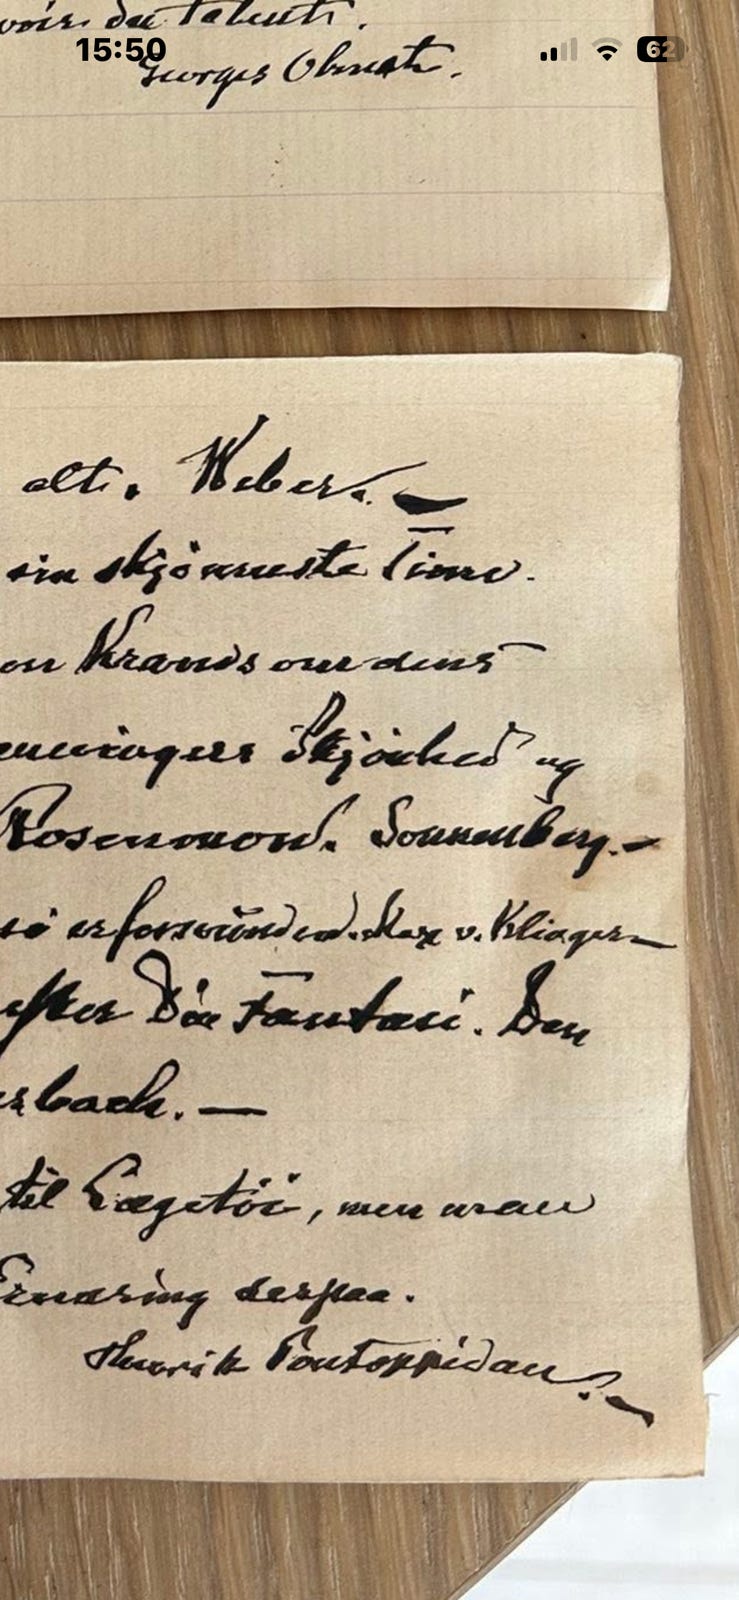 voir du talent.
15:50
62
Georges Ohnet.
alt. Weber.
sin skjönneste Time.
en Krands om dens
Skjönhed og
Rosenmond. Sonnenberg.
så er forsvunden. Max v. Klinger
efter Din Fantasi. Den
rbach.
til Lægetöi, men
Ernæring derpaa.
Henrik Pontoppidan.